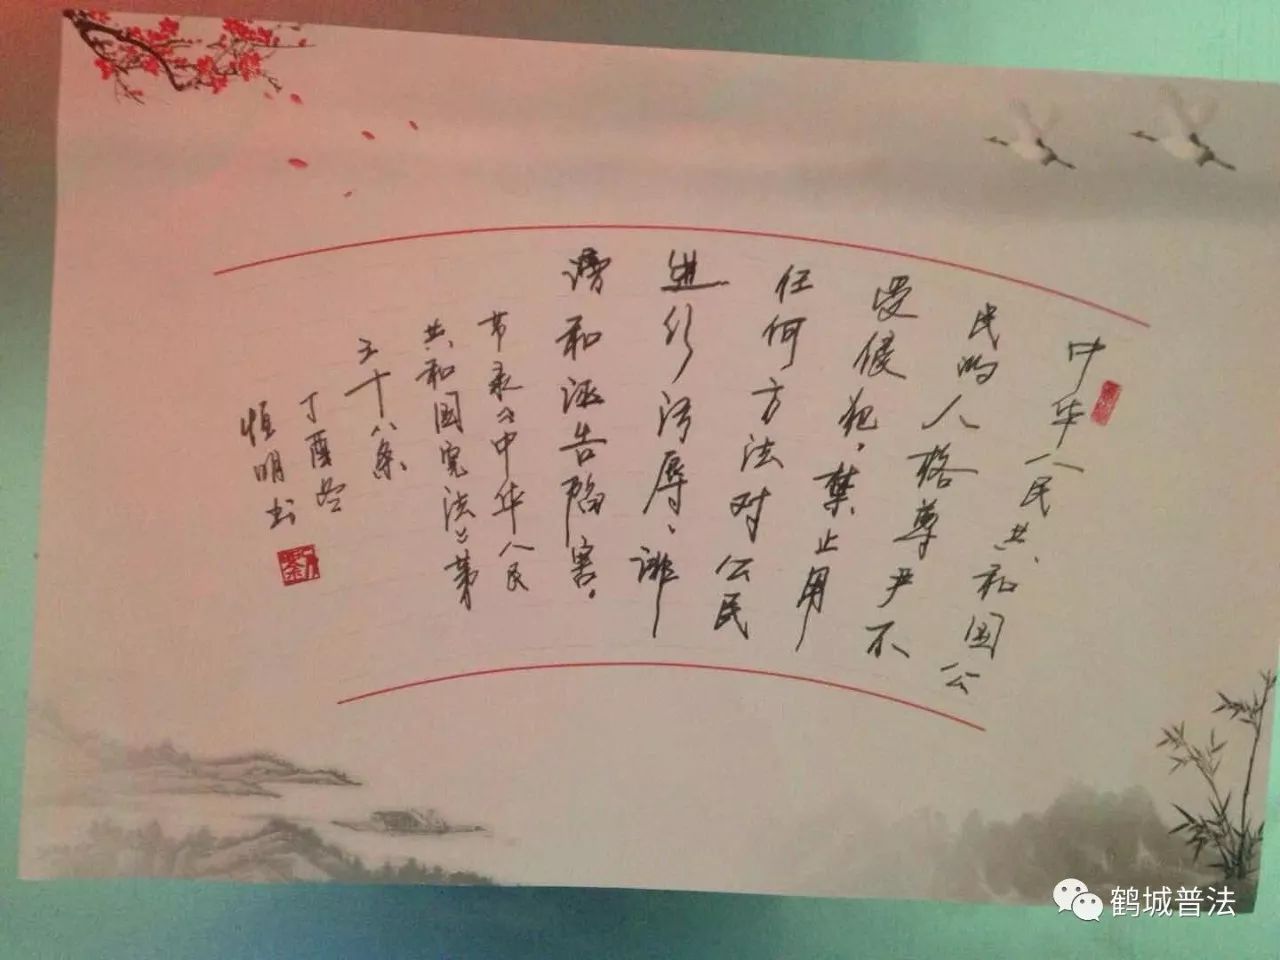 中华人民共和国公
民的人格尊严不
受侵犯，禁止用
任何方法对公民
进行污辱、诽
谤和诬告陷害。
节录《中华人民
共和国宪法》第
三十八条
丁酉冬
恒明书
鹤城普法